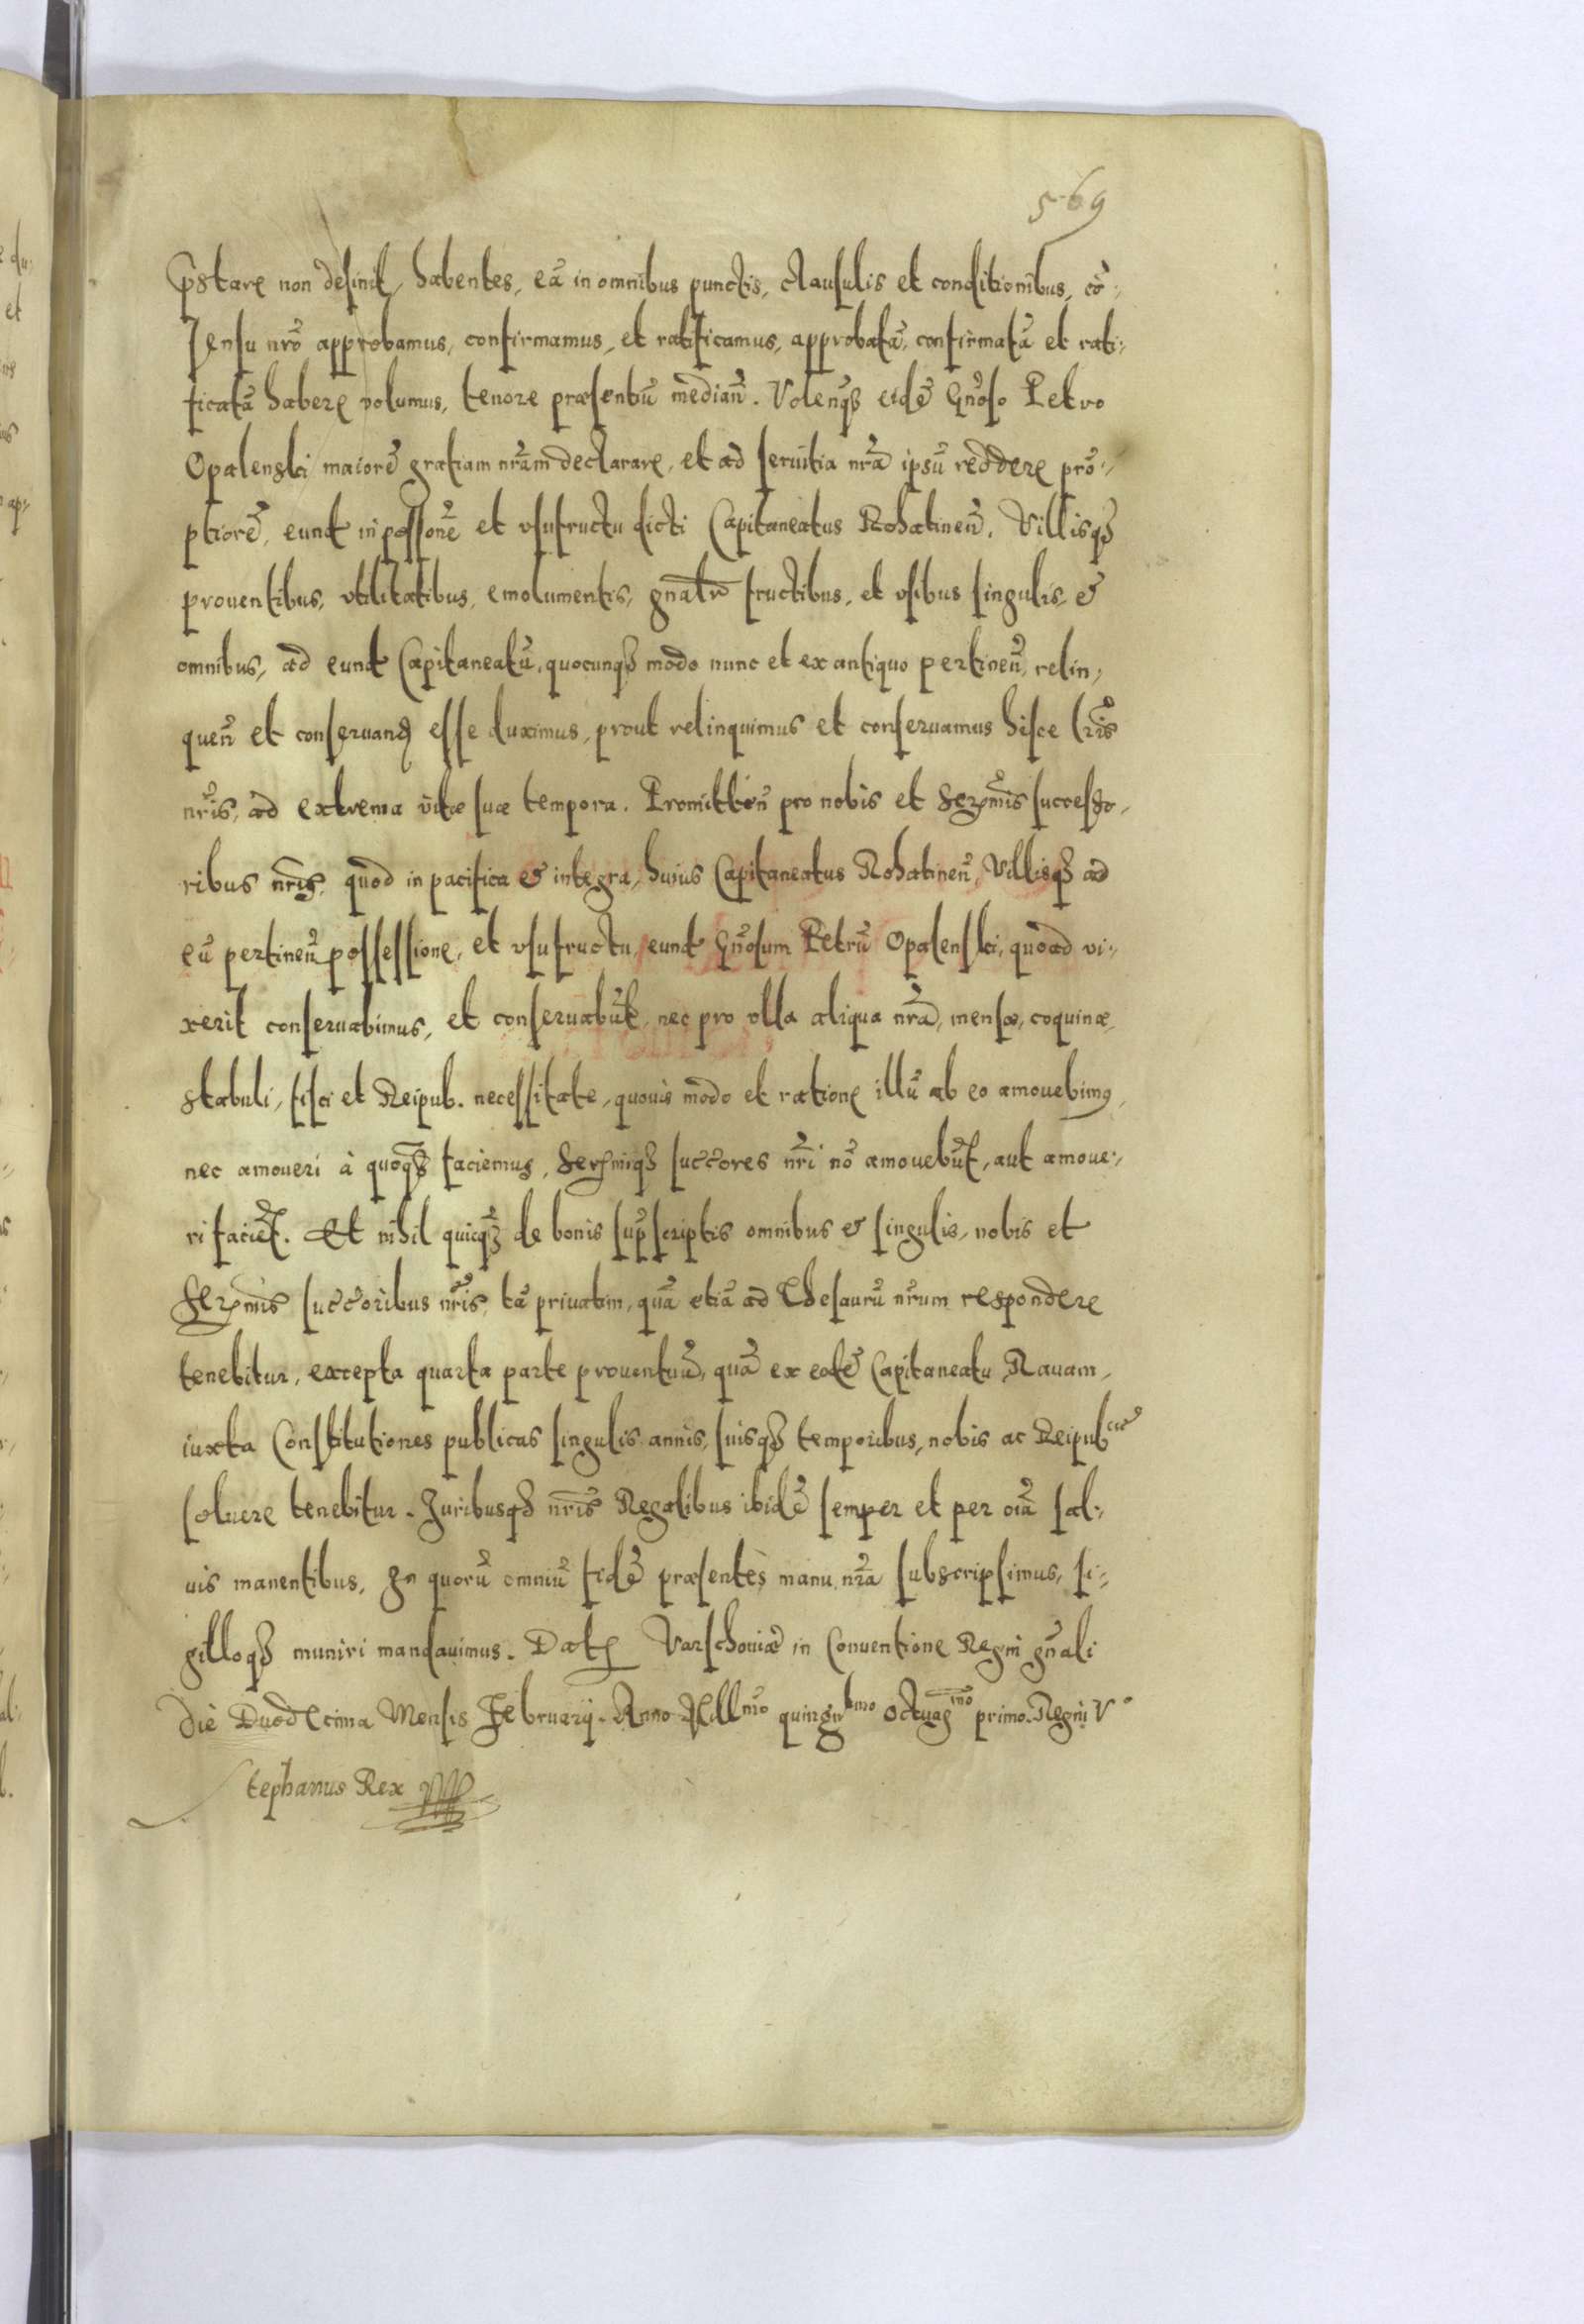 569
p̃stare non desinit, habentes, eã in omnibus punctis, clausulis et conditionibus, cõ-
sensu nrõ approbamus, confirmamus, et ratificamus, approbatã, confirmatã et rati-
ficatã habere volumus, tenore præsentiũ median̄. Volenq̃ eidẽ Gñoso Petro
Opalenski maiorẽ gratiam nr̃am declarare, et ad seruitia nr̃a ipsũ reddere prõ-
ptiorẽ, eund in possonẽ et vsufructu dicti Capitaneatus Rohatineñ. Villisq̃
prouentibus, vtilitatibus, emolumentis, gñalr̃ fructibus, et vsibus singulis, &
omnibus, ad eund Capitaneatũ, quocunq̃ modo nunc et ex antiquo pertineñ, relin-
queñ et conseruand esse duximus, prout relinquimus et conseruamus hisce lr̃is
nr̃is, ad extrema vitæ suæ tempora. Promitteñ pro nobis et Serẽmis successo-
ribus nr̃is, quod in pacifica & integra, huius Capitaneatus Rohatineñ, Villisq̃ ad
eũ pertineñ possessione, et vsufructu, eund Gñosum Petrũ Opalenski, quoad vi-
xerit conseruabimus, et conseruabũt, nec pro vlla aliqua nr̃a, mensæ, coquinæ,
stabuli, fisci et Reipub. necessitate, quouis modo et ratione illũ ab eo amouebimꝰ,
nec amoueri à quoq̃ faciemus, Serẽmiq̃ succores nr̃i nõ amouebũt, aut amoue-
ri faciẽt. Et nihil quicq̃ de bonis sup̃scriptis omnibus & singulis, nobis et
Serẽmis succoribus nr̃is, tã priuatim, quã etiã ad Thesaurũ nr̃um respondere
tenebitur, excepta quarta parte prouentuũ, quã ex eodẽ Capitaneatu Rauam,
iuxta Constitutiones publicas singulis annis, suisq̃ temporibus, nobis ac Reipubcæ
soluere tenebitur. Juribusq̃ nr̃is Regalibus ibidẽ semper et per oĩa sal-
uis manentibus, In quorũ omniũ fidẽ præsentes manu nr̃a subscripsimus, si-
gilloq̃ muniri mandauimus. Dat Varschouiæ in Conuentione Regni gñali
die Duodecima Mensis Februarij. Anno Millmo quingntmo Octuagmo primo. Regni Vo
Stephanus Rex